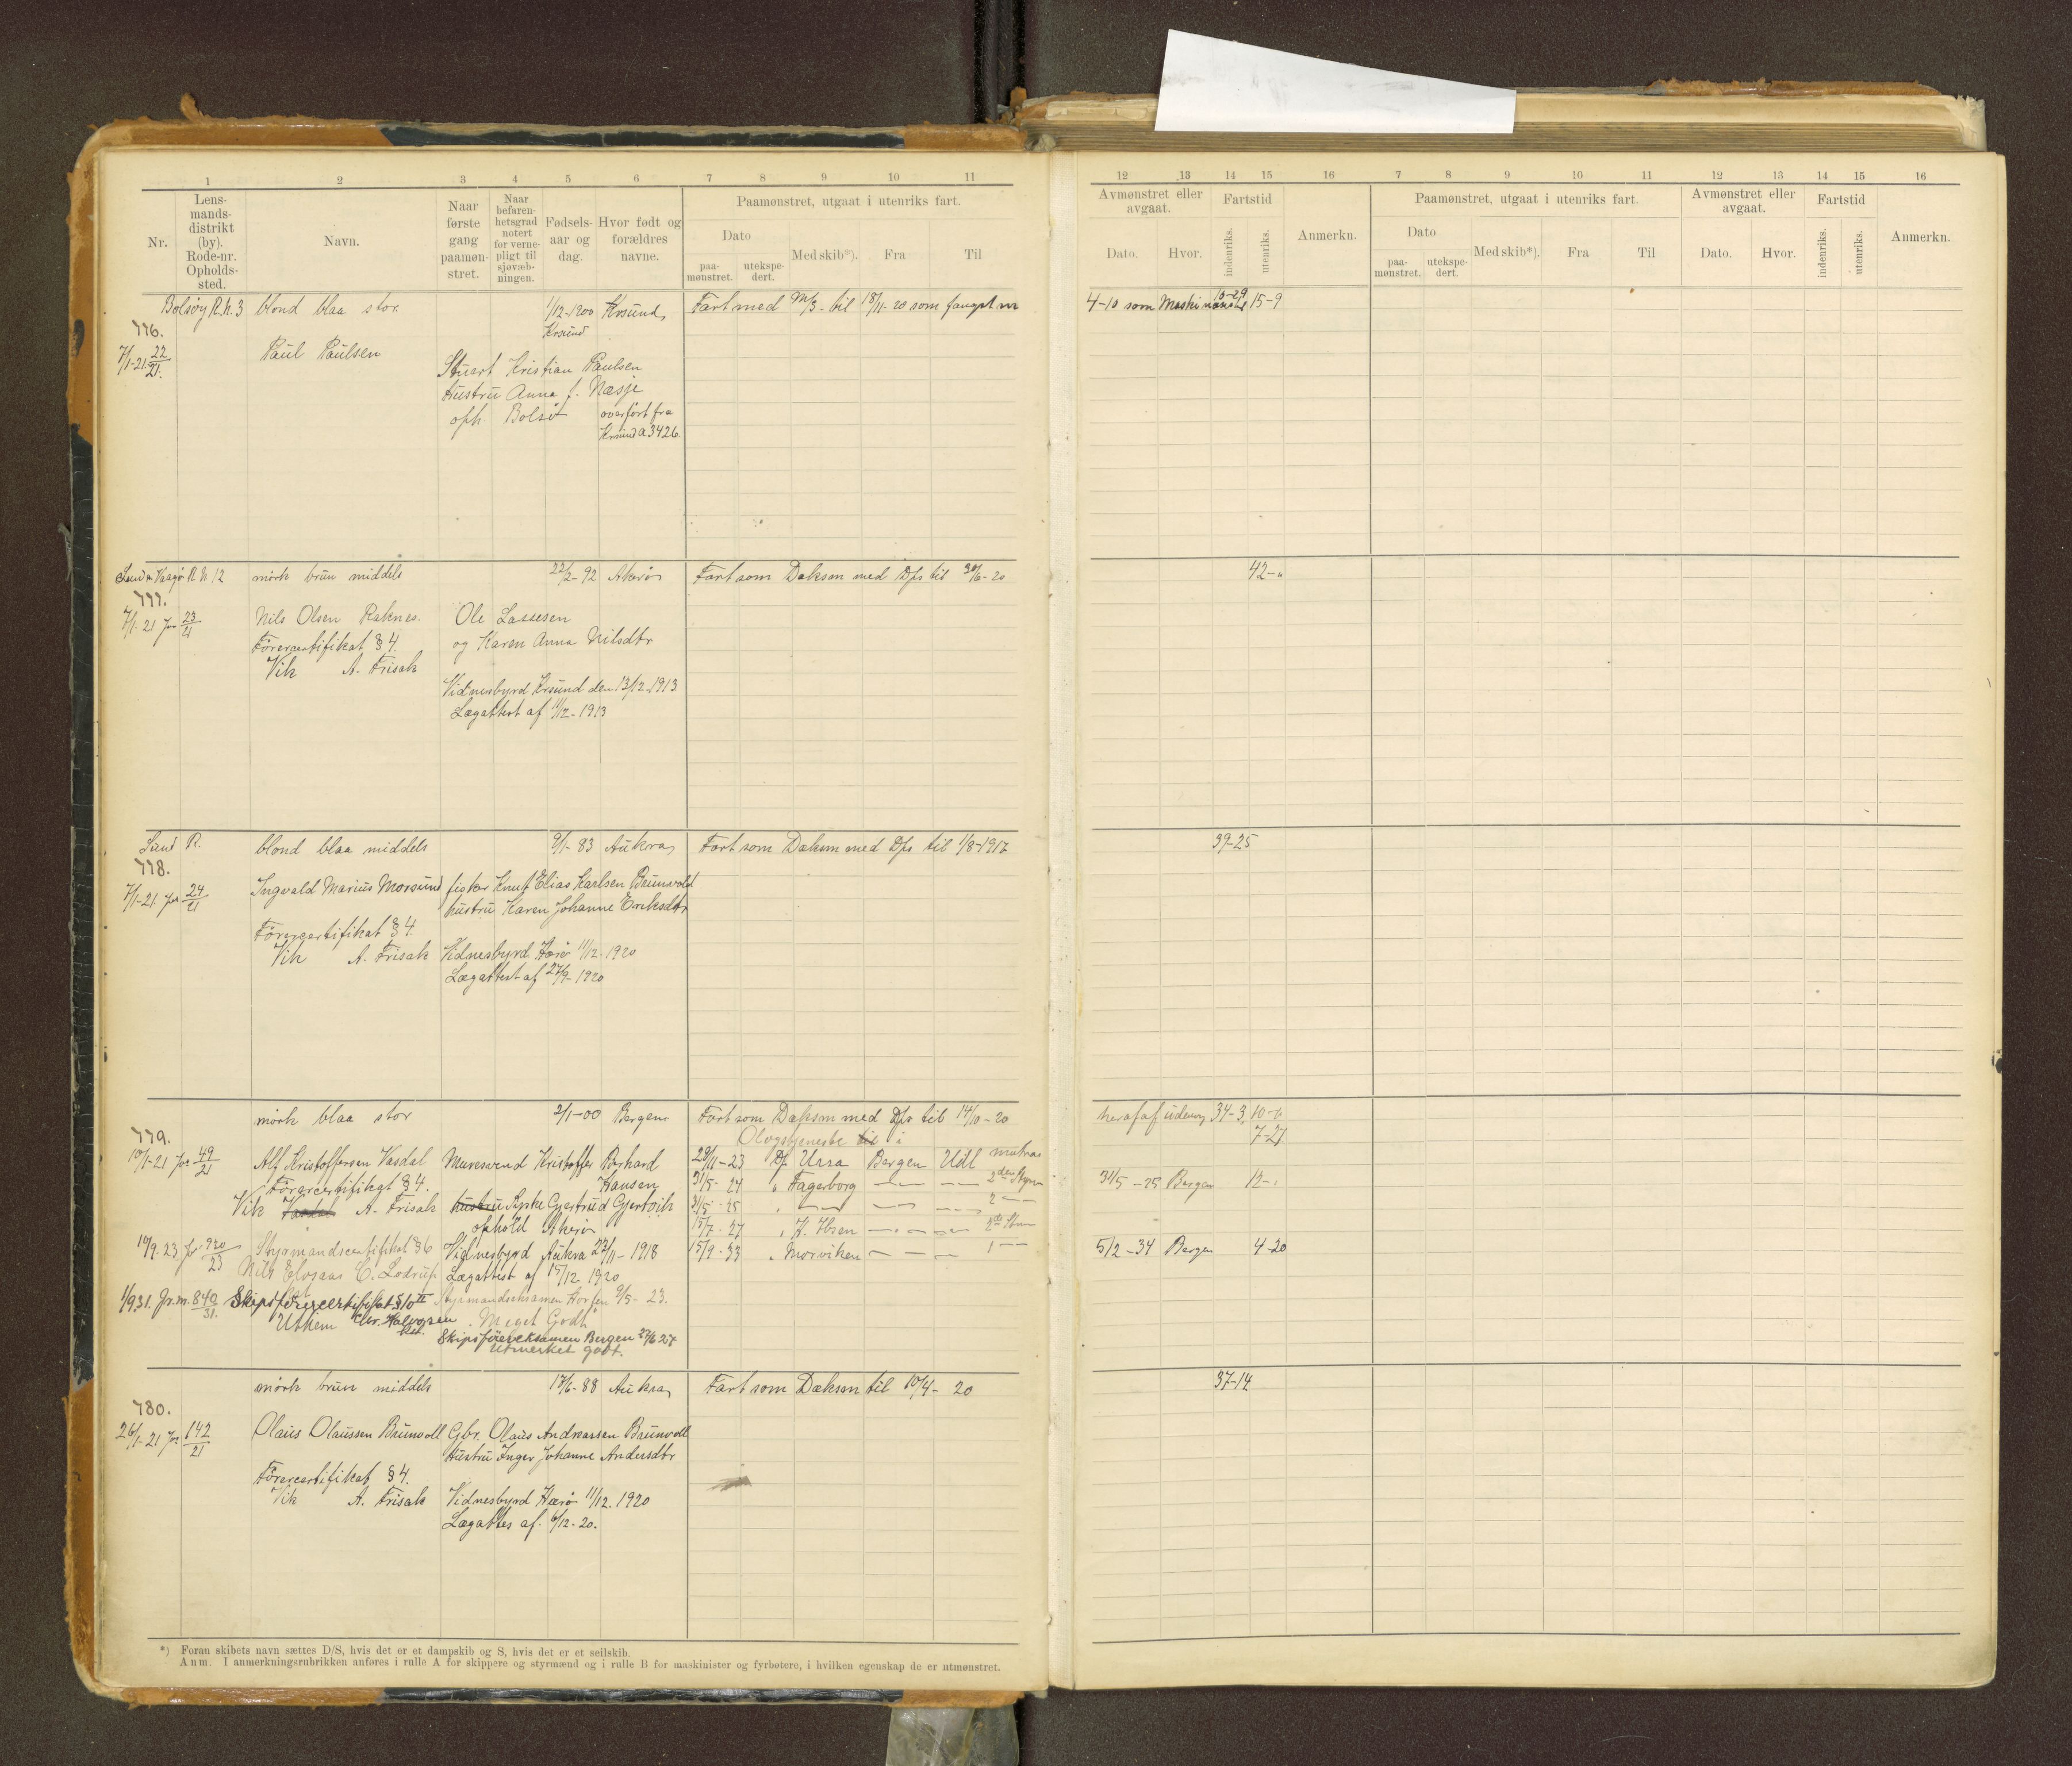 1 2 3 4 5 6 7 8 9 10 11
Nr.
Lens-
mands-
distrikt
(by).
Rode-nr.
Opholds-
sted.
Navn.
Naar
første
gang
paamøn-
stret.
Naar
befaren-
hetsgrad
notert
for verne-
pligt til
sjøvæb-
ningen.
Fødsels-
aar og
dag.
Hvor født og
forældres
navne.
Paamønstret, utgaat i utenriks fart.
Dato
paa-
mønstret.
utekspe-
dert.
Med skib*).
Fra
Til
Bolsøy R.N. 3 blond blaa stor 1/12-1900 Krsund Fart med til 18/11-20 som fangst m
Krsund
776.
7/1-21. 22/21. Paul Paulsen
Stuert Kristian Paulsen
Hustru Anna f. Næsje
oph. Bolsö overført fra
Krsund A 3426.
R N 12 mörk brun middels 22/2-92 Akerö Fart som Dæksm med D/s til 30/6-20
777.
7/1-21 Jr 23/21 Nils Olsen Raknes. Ole Lassesen
og Karen Anna Nilsdtr
Förercertifikat § 4.
Vik A. Frisak
Vidnesbyrd Krsund den 13/12-1913
Lægattest af 11/12-1913
Sund R. blond blaa middels 9/1-83 Aukra Fart som Dæksm med D/s til 1/8-1917
778.
7/1-21. Jr 24/21 Ingvald Marius Morsund fisker Knut Elias Karlsen Brunvold
hustru Karen Johanne Eriksdtr
Förercertifikat § 4.
Vik A. Frisak Vidnesbyrd Harö 11/12-1920
Lægattest af 27/9-1920
mörk blaa stor 2/1-00 Bergen Fart som Dæksm med D/s til 14/10-20
779.
Ologstjeneste til i
10/1-21 Jr 49/21 Alf Kristoffersen Vasdal Murersvend Kristoffer Berhard
Hansen
28/11-23 D/s Ursa Bergen Udl matros
Förercertifikat § 4.
31/5-24 " Fagerborg — — 2den Styrm
Vik A. Frisak hustru Rjske Gjertrud Gjertvik
31/5-25 " — — — 2 —
ophold Akerö
15/7-27 " H. Ibsen — — 2de Stm
10/9.23 Jr 930/23 Styrmandscertifikat § 6 Vidnesbyrd Aukra 22/11-1918
15/9-33 " Morviken — — 1 —
Nils Elvsaas C. Lødrup Lægattest af 15/12 1920
1/9.31. Jr.m. 840/31. Skipsförercertifikat § 10 II Styrmandseksamen Horten 9/5-23.
Uthem Chr. Halvorsen Meget Godt
Skipsføiereksamen Bergen 22/6 27
Utmerket godt.
mörk brun middels 17/6-88 Aukra Fart som Dæksm til 10/4-20
780.
26/1-21 Jr 142/21 Olaus Olaussen Brunvoll Gbr. Olaus Andreassen Brunvoll
Hustru Inger Johanne Andersdtr
Förercertifikat § 4.
Vik A. Frisak Vidnesbyrd Harö 11/12.1920
Lægattes af. 6/12-20.
*) Foran skibets navn sættes D/S, hvis det er et dampskib og S, hvis det er et seilskib.
Anm. I anmerkningsrubrikken anføres i rulle A for skippere og styrmænd og i rulle B for maskinister og fyrbøtere, i hvilken egenskap de er utmønstret.
12 13 14 15 16 7 8 9 10 11 12 13 14 15 16
Avmønstret eller
avgaat.
Dato.
Hvor.
Fartstid
indenriks.
utenriks.
Anmerkn.
Paamønstret, utgaat i utenriks fart.
Dato
paa-
mønstret.
utekspe-
dert.
Med skib*).
Fra
Til
Avmønstret eller
avgaat.
Dato.
Hvor.
Fartstid
indenriks.
utenriks.
Anmerkn.
4-10 som 10-29 15-9
42-"
39-25
heraf af udenrg 34-3 10-"
7-27
31/5-25 Bergen 12-"
5/2-34 Bergen 4-20
37-14